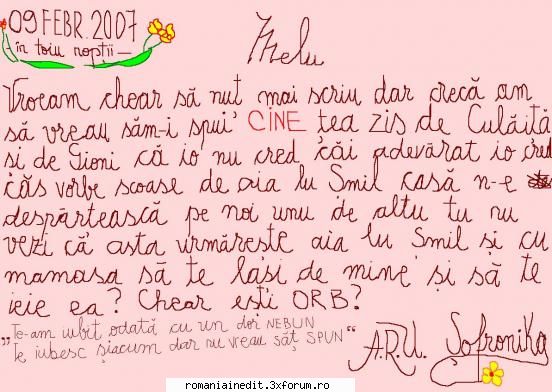 09 FEBR. 2007
în toiu nopții —
Melu
Vroeam chear să nuț mai scriu dar crecă am
să vreau săm-i spui CINE țea zis de Culăiță
și de Gioni că io nu cred căi adevărat io cred
căs vorbe scoase de aia lu Smil casă n-e
despărtească pe noi unu de altu tu nu
vezi că asta urmărește aia lu Smil și cu
mamasa să te lași de mine și să te
ieie ea? Chear ești ORB?
„Te-am iubit odată cu un dor NEBUN
Te iubesc șiacum dar nu vreau săț SPUN"
A.R.U. Sofronika
romaniainedit.3xforum.ro